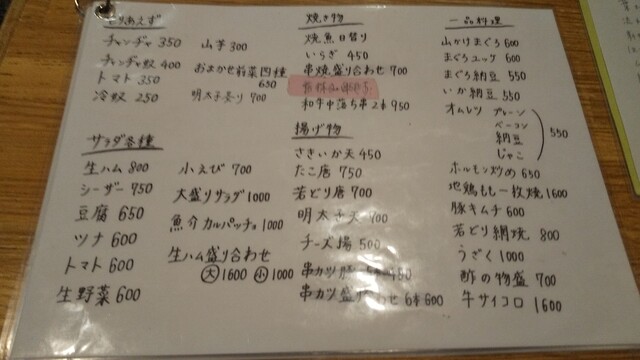 とりあえず
チャンヂャ 350
チャンヂャ奴 400
トマト 350
冷奴 250
山芋 300
おまかせ前菜四種 650
明太子炙り 700
サラダ各種
生ハム 800
シーザー 750
豆腐 650
ツナ 600
トマト 600
生野菜 600
小えび 700
大盛りサラダ 1000
魚介カルパッチョ 1000
生ハム盛り合わせ
大 1600 小 1000
焼き物
焼魚日替り
いらぎ 450
串焼盛り合わせ 700
和牛中落ち串2本 950
揚げ物
さきいか天 450
たこ唐 750
若どり唐 700
明太子天 700
チーズ揚 500
串カツ
串カツ盛り合わせ 6本 600
一品料理
山かけまぐろ 600
まぐろユッケ 600
まぐろ納豆 550
いか納豆 550
オムレツ プレーン
ベーコン
納豆 550
じゃこ
ホルモン炒め 650
地鶏もも一枚焼 1600
豚キムチ 600
若どり網焼 800
うざく 1000
酢の物盛 700
牛サイコロ 1600